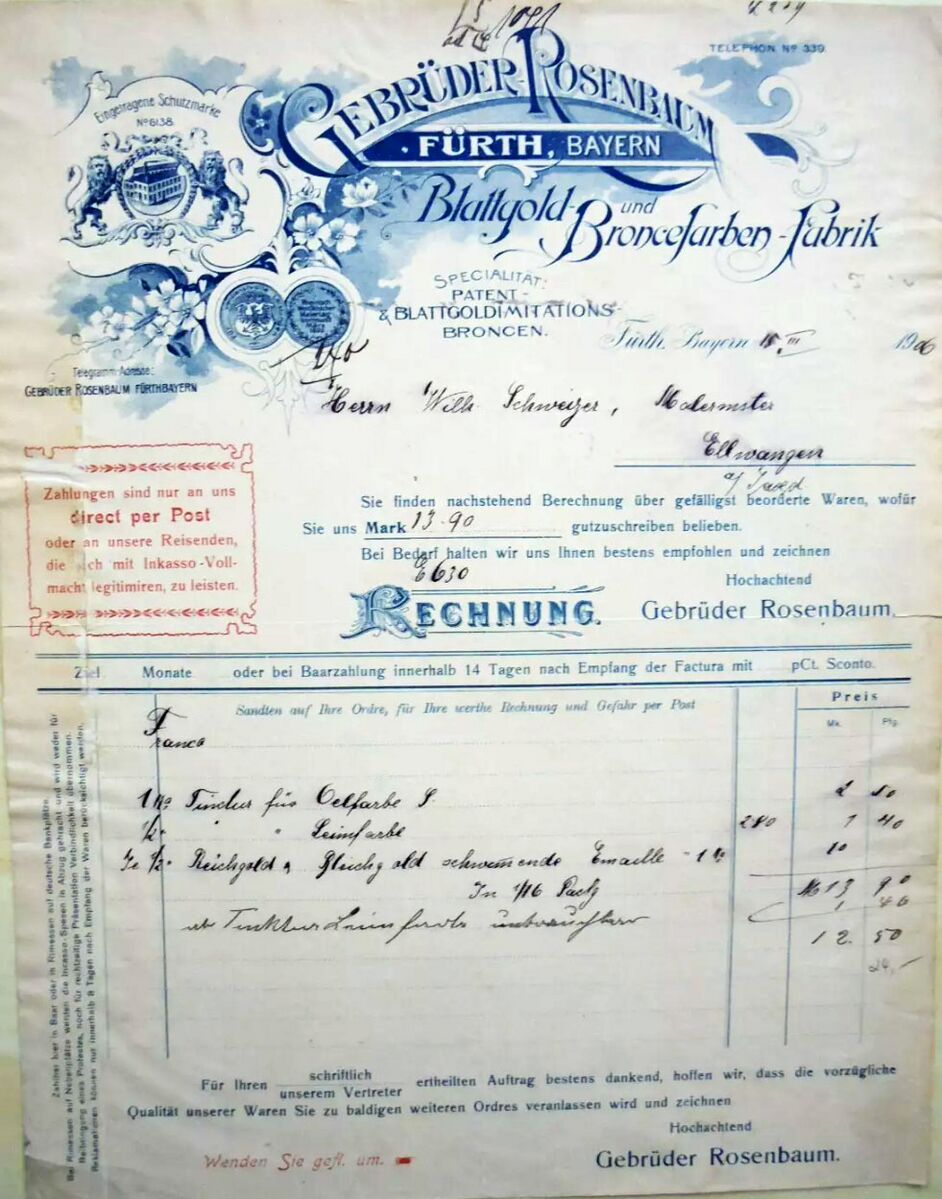 1091
TELEPHON Nº 339.
Eingetragene Schutzmarke
Nº 6138.
GEBRÜDER ROSENBAUM
FÜRTH, BAYERN
Blattgold- und
Broncefarben-Fabrik
SPECIALITÄT:
PATENT-
& BLATTGOLDIMITATIONS-
BRONCEN.
Fürth, Bayern 15. III 1906
Telegramm-Adresse:
GEBRÜDER ROSENBAUM FÜRTHBAYERN
Herrn Wilh. Schweizer, Malermster
Ellwangen
a/ Jaxd
Zahlungen sind nur an uns
direct per Post
oder an unsere Reisenden,
die sich mit Inkasso-Voll-
macht legitimiren, zu leisten.
Sie finden nachstehend Berechnung über gefälligst beorderte Waren, wofür
Sie uns Mark 13.90 gutzuschreiben belieben.
Bei Bedarf halten wir uns Ihnen bestens empfohlen und zeichnen
E630
Hochachtend
RECHNUNG.
Gebrüder Rosenbaum.
Ziel Monate oder bei Baarzahlung innerhalb 14 Tagen nach Empfang der Factura mit pCt. Sconto.
Preis
Sandten auf Ihre Ordre, für Ihre werthe Rechnung und Gefahr per Post
Mk. Pfg.
Franco
1 Ko Tinctur für Oelfarbe S. 2 50
1/2 " " " Leimfarbe 280 1 40
Je 1/2 " Reichgold & Emaille 1 Ko 10
In 1/16 Pack
M 13 90
ab Tinktur Leimfarbe unbrauchbar 1 40
12. 50
24,-
Zahlbar hier in Baar oder in Rimessen auf deutsche Bankplätze.
Bei Rimessen auf Nebenplätze werden die Incasso-Spesen in Abzug gebracht und wird weder für
Beibringung eines Protestes, noch für rechtzeitige Präsentation Verbindlichkeit übernommen.
Reklamationen können nur innerhalb 8 Tagen nach Empfang der Waren berücksichtigt werden.
Für Ihren schriftlich
unserem Vertreter ertheilten Auftrag bestens dankend, hoffen wir, dass die vorzügliche
Qualität unserer Waren Sie zu baldigen weiteren Ordres veranlassen wird und zeichnen
Hochachtend
Wenden Sie gefl. um.
Gebrüder Rosenbaum.